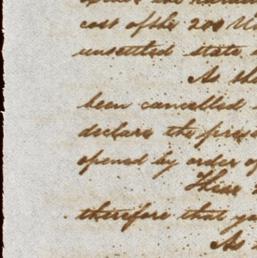 cost of the 200
unsettled state
As the
been cancelled
declare the
opened by order of
These
therefore that
As